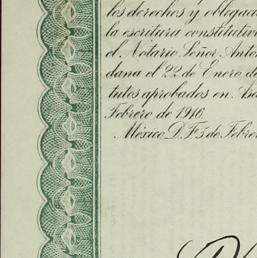 los derechos y obligaci
la escritura constitutiv
el Notario Señor Anto
dana el 22 de Enero de
tutos aprobados en Asa
Febrero de 1946.
México D. F. 5 de Febrer